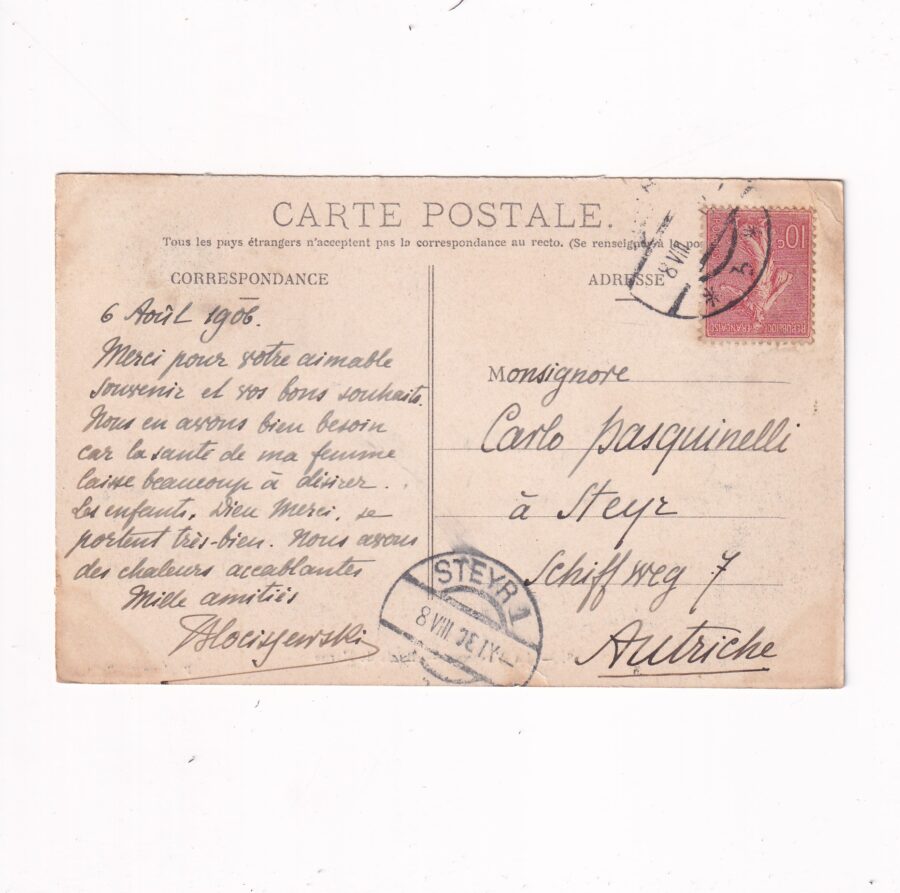 CARTE POSTALE.
Tous les pays étrangers n'acceptent pas la correspondance au recto. (Se renseigner à la pos
CORRESPONDANCE
ADRESSE
6 Août 1906.
Merci pour votre aimable
souvenir et vos bons souhaits.
Nous en avons bien besoin
car la santé de ma femme
laisse beaucoup à désirer.
Les enfants, Dieu Merci, se
portent très-bien. Nous avons
des chaleurs accablantes
Mille amitiés
Monsignore
Carlo Pasquinelli
à Steyr
Schiffweg 7
Autriche
8 VIII
10c
REPUBLIQUE FRANÇAISE
STEYR 1
8 VIII 06 IX